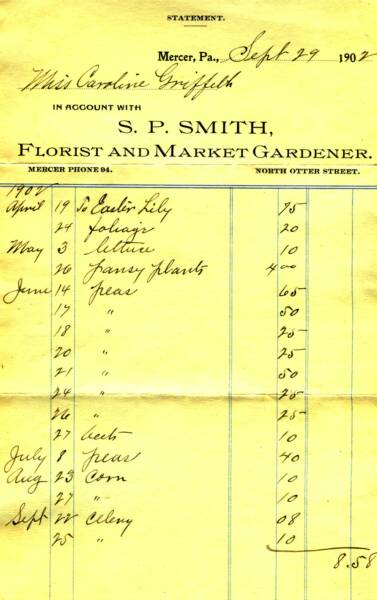 STATEMENT.
Mercer, Pa., Sept 29 1902
Miss Caroline Griffeth
IN ACCOUNT WITH
S. P. SMITH,
FLORIST AND MARKET GARDENER.
MERCER PHONE 94. NORTH OTTER STREET.
1902
April 19 To Easter Lily 75
24 foliage 20
May 3 lettuce 10
26 pansy plants 4 00
June 14 peas 65
17 " 50
18 " 25
20 " 25
21 " 50
24 " 25
26 " 25
27 beets 10
July 8 peas 40
Aug 23 Corn 10
27 " 10
Sept 22 Celery 08
25 " 10
8.58